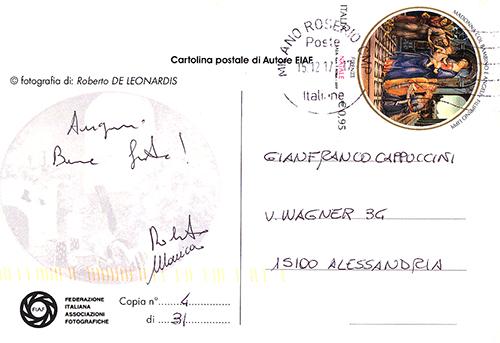 Cartolina postale di Autore FIAF
© fotografia di: Roberto DE LEONARDIS
Auguri
Buone feste!
Roberto
Marica
FIAF
FEDERAZIONE
ITALIANA
ASSOCIAZIONI
FOTOGRAFICHE
Copia n° 4
di 31
MILANO ROSERIO CMP
Poste
15.12.17
Italiane
ITALIA
NATALE
€0,95
MADONNA COL BAMBINO E ANGELI, FILIPPINO LIPPI
GIANFRANCO CAPPUCCINI
V. WAGNER 3G
15100 ALESSANDRIA